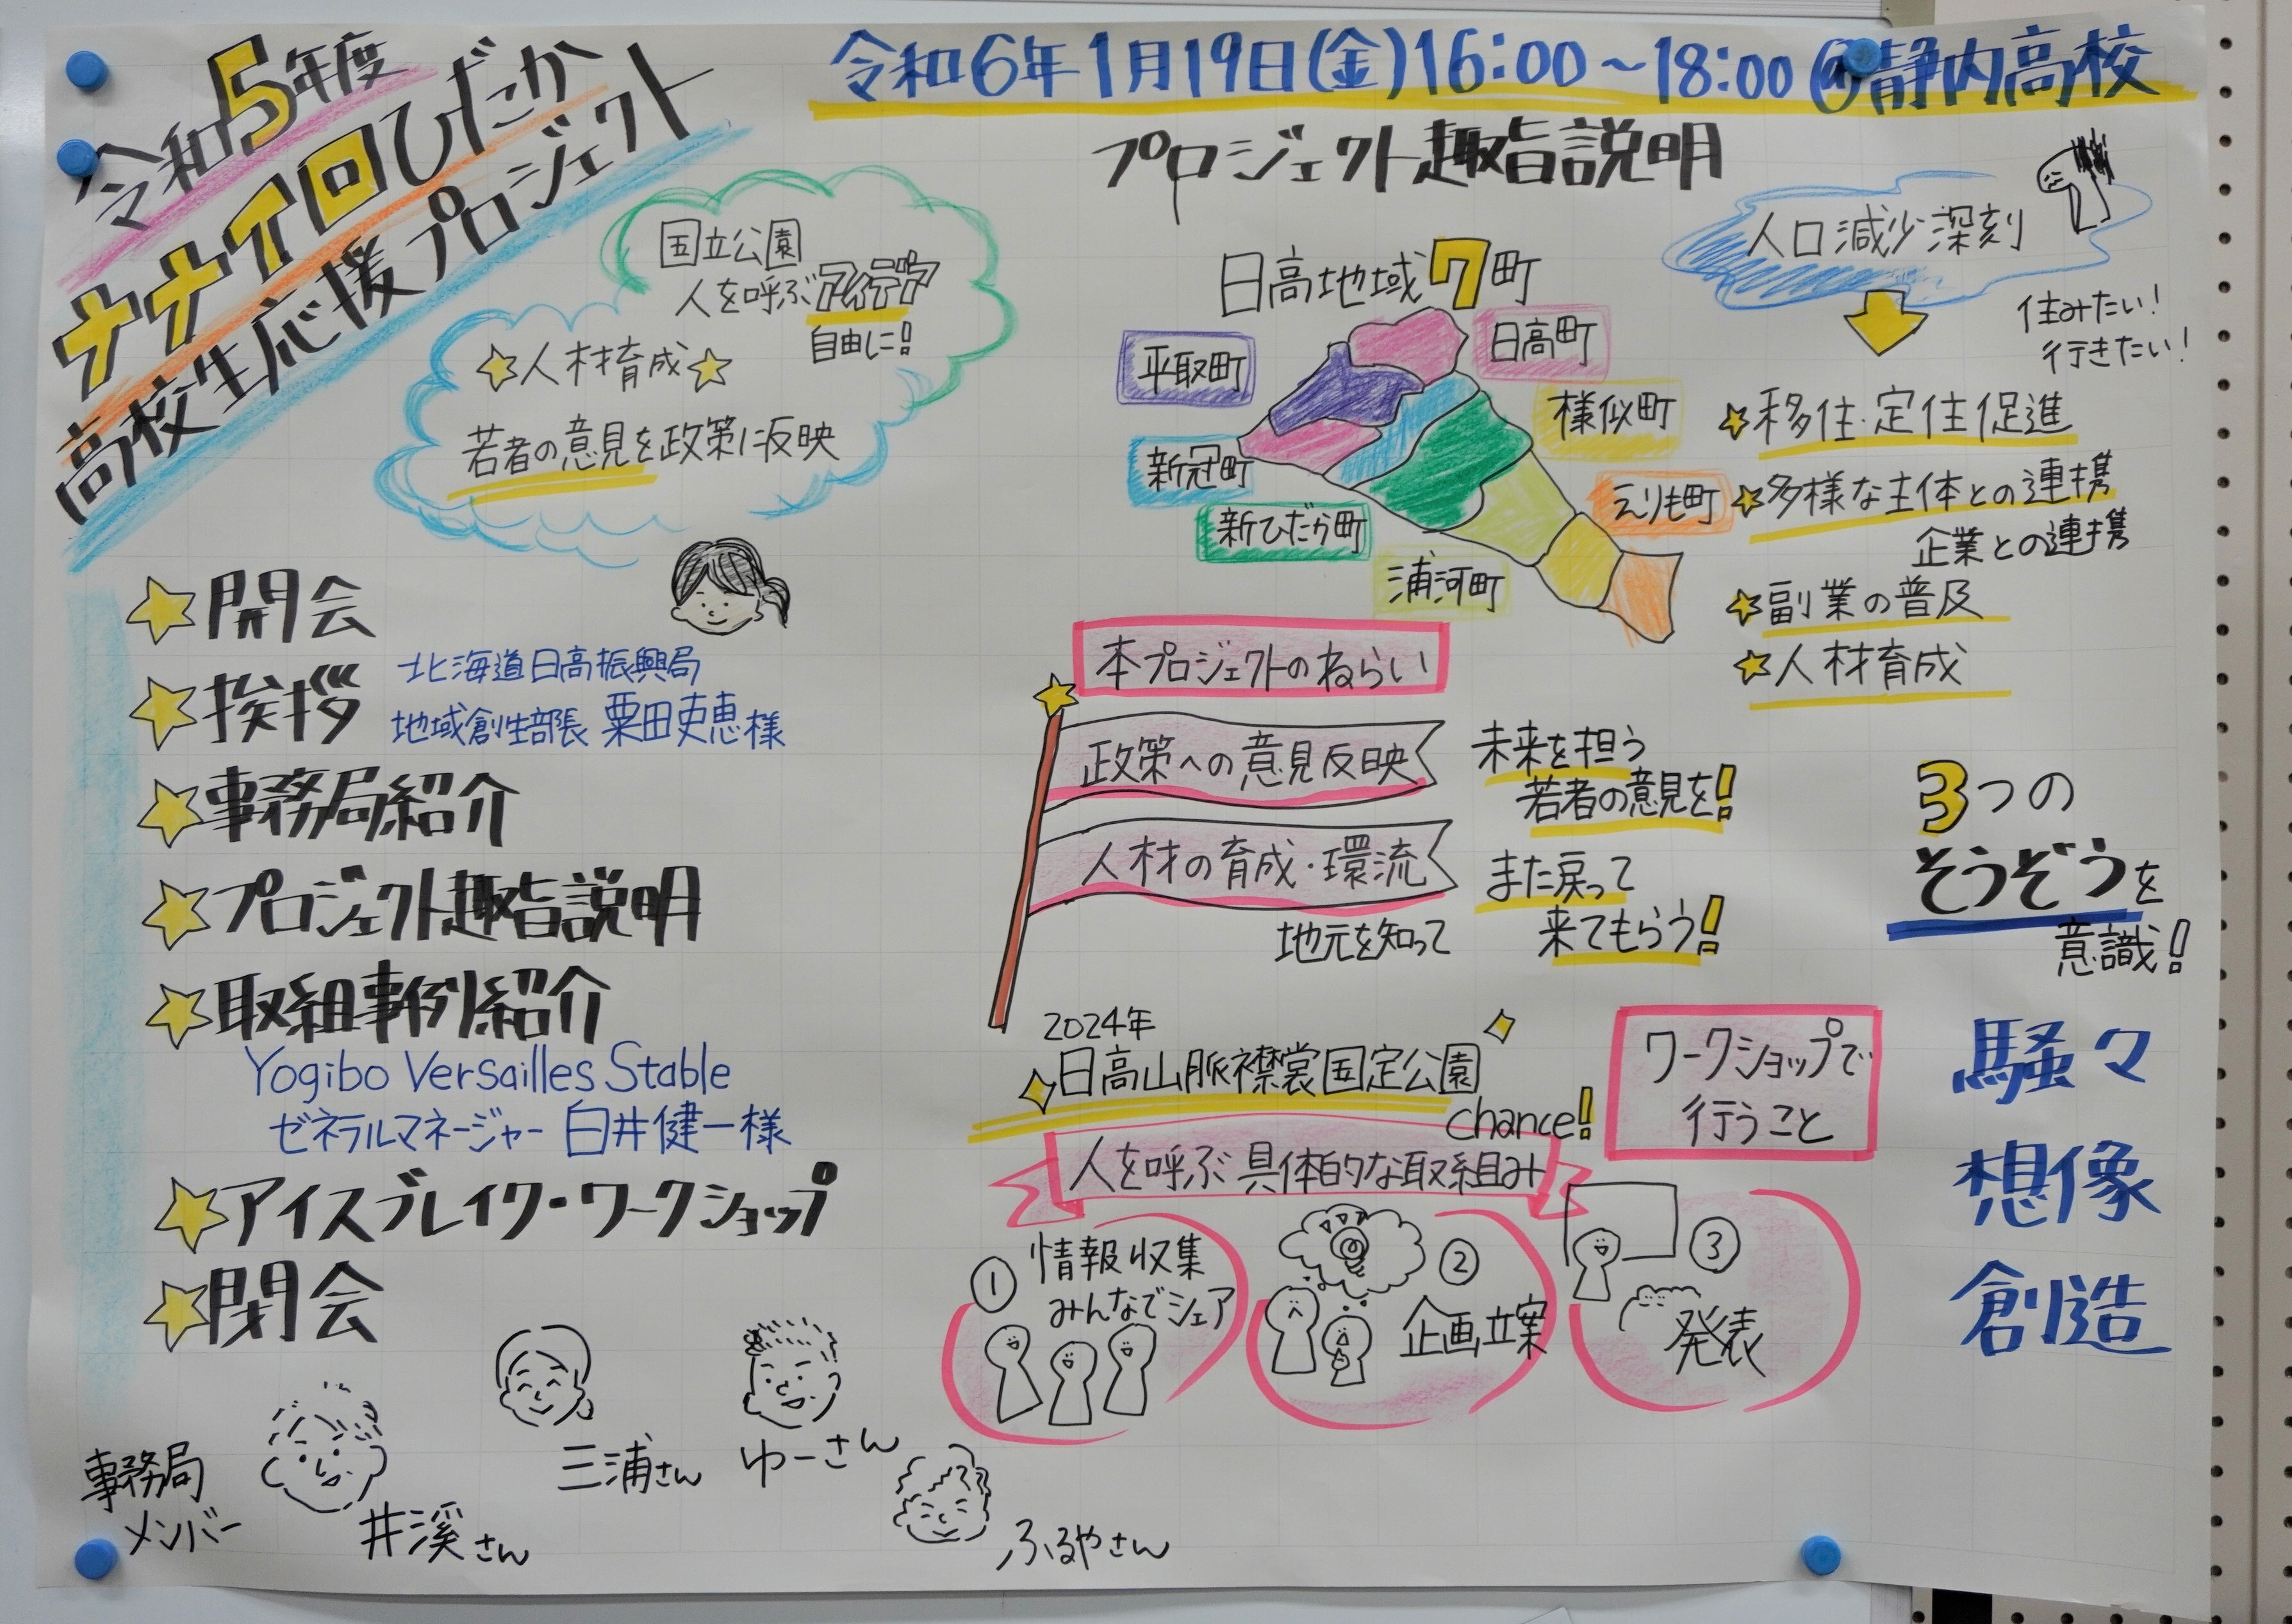 令和5年度
ナナイロひだか
高校生応援プロジェクト
令和6年1月19日(金)16:00～18:00@静内高校
国立公園
人を呼ぶアイデア
自由に!
人材育成
若者の意見を政策に反映
開会
挨拶
北海道日高振興局
地域創生部長 粟田吏恵様
事務局紹介
プロジェクト趣旨説明
取組事例紹介
Yogibo Versailles Stable
ゼネラルマネージャー 臼井健一様
アイスブレイク・ワークショップ
閉会
事務局
メンバー
井溪さん
三浦さん
ゆーさん
ふるやさん
プロジェクト趣旨説明
日高地域7町
平取町
日高町
新冠町
様似町
新ひだか町
えりも町
浦河町
人口減少深刻
住みたい!
行きたい!
移住・定住促進
多様な主体との連携
企業との連携
副業の普及
人材育成
本プロジェクトのねらい
政策への意見反映
未来を担う
若者の意見を!
人材の育成・環流
地元を知って
また戻って
来てもらう!
2024年
日高山脈襟裳国定公園
chance!
人を呼ぶ具体的な取組み
ワークショップで
行うこと
① 情報収集
みんなでシェア
②
企画立案
③
発表
3つの
そうぞうを
意識!
騒々
想像
創造